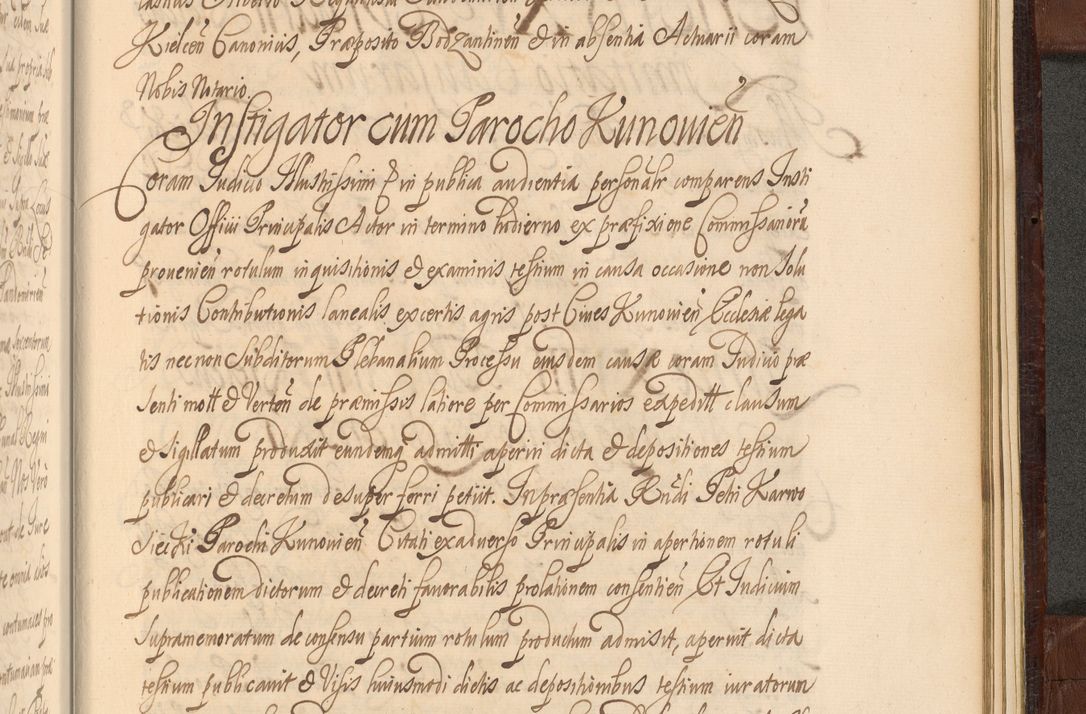 Kielcen̄ Canonius, Præposito Bodzantinen̄ & in absentia Actuarii coram
Nobis Notario.
Instigator cum Parocho Kunovień
Coram Judicio Illustrissimi & in publica audientia personalr comparens Insti
gator Officii Principalis Actor in termino hodierno ex præfixione Commissariorū
provenień rotulum inquisitionis & examinis testium in causa occasione non Solu
tionis Contributionis lanealis ex certis agris post Cives Kunovień Ecclesiæ lega
tis necnon Subditorum Plebanalium Processu eiusdem causæ coram Judicio præ
senti mott & Verten̄ de præmissis labore per Commissarios expeditt clausum
& sigillatum produxit eundemq admitti aperiri dicta & depositiones testium
publicari & decretum desuper ferri petiit. In præsentia Rndi Petri Karwo
siecki Parochi Kunovień Citati ex adverso Principalis in apertionem rotuli
publicationem dictorum & decreti favorabilis prolationem consentień Et Judicium
supramemoratum de consensu partium rotulum productum admisit, aperuit dicta
testium publicavit & Visis huiusmodi dictis ac depositionibus testium iuratorum